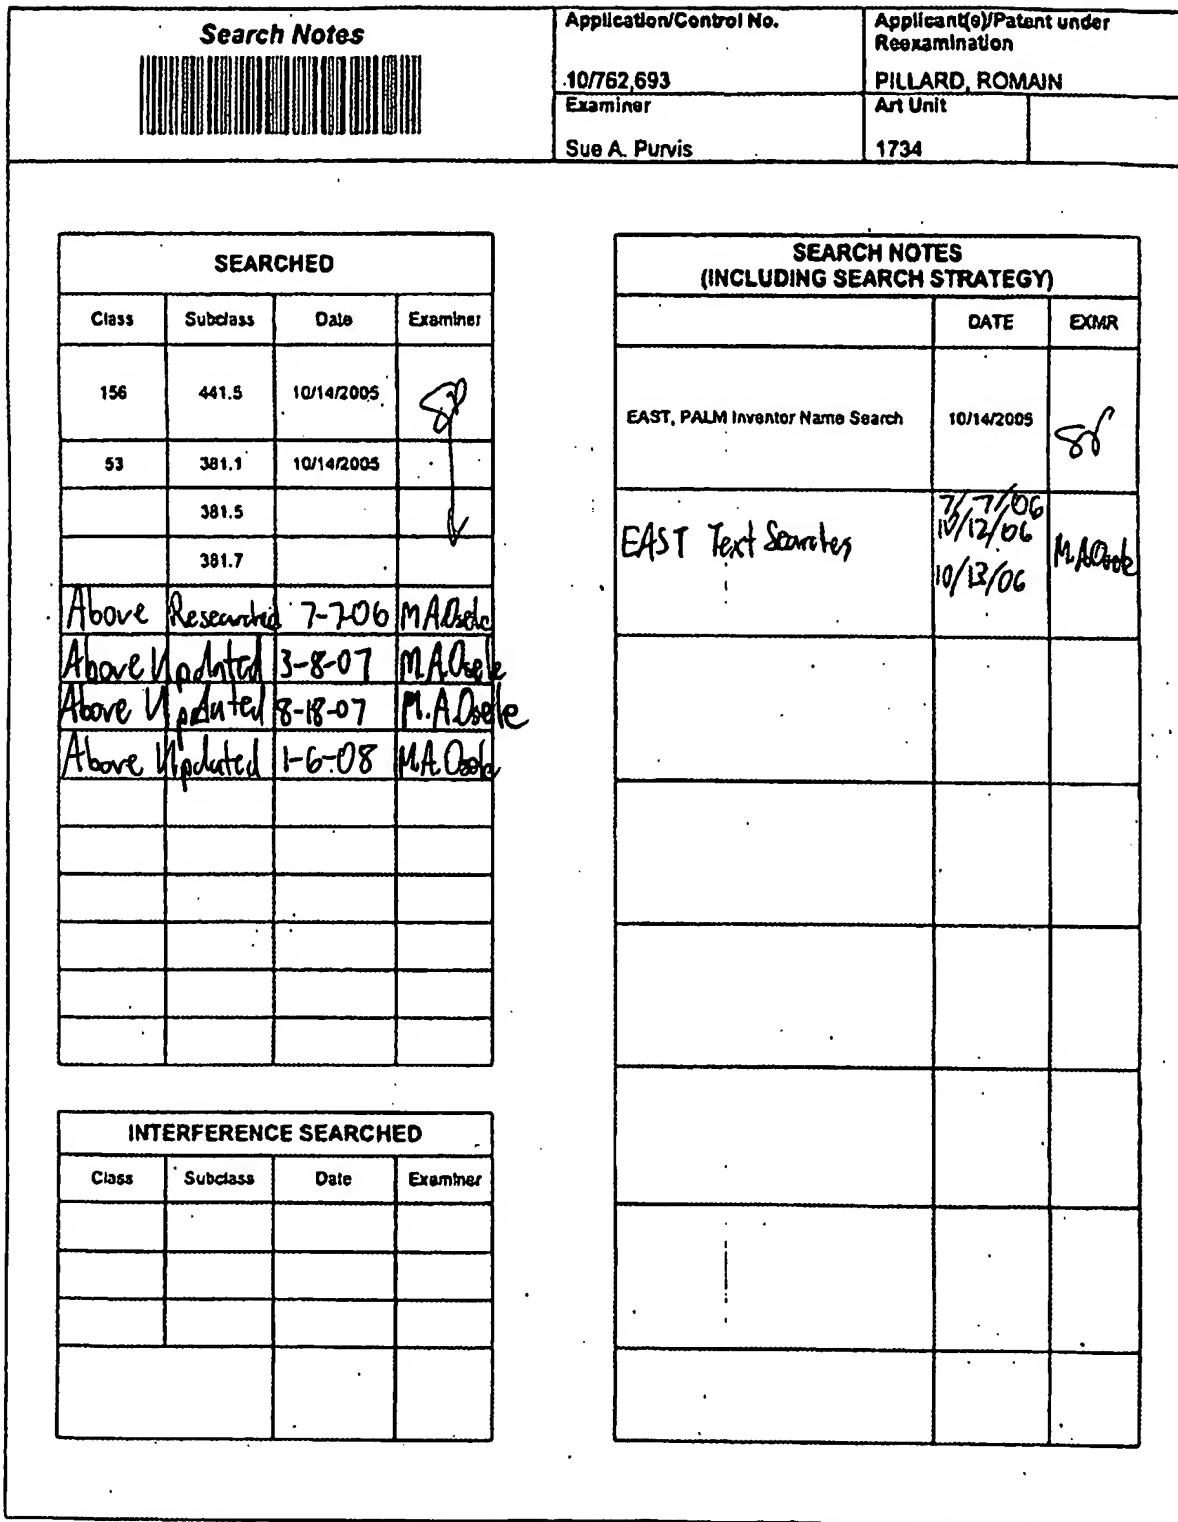 Search Notes
Application/Control No.
10/762,693
Applicant(s)/Patent under
Reexamination
PILLARD, ROMAIN
Examiner
Sue A. Purvis
Art Unit
1734
SEARCHED
Class Subclass Date Examiner
156 441.5 10/14/2005 SP
53 381.1 10/14/2005
381.5
381.7
Above Researched 7-7-06 M.A.Osele
Above Updated 3-8-07 M.A.Osele
Above Updated 8-18-07 M.A.Osele
Above Updated 1-6-08 M.A.Osele
INTERFERENCE SEARCHED
Class Subclass Date Examiner
SEARCH NOTES
(INCLUDING SEARCH STRATEGY)
DATE EXMR
EAST, PALM Inventor Name Search 10/14/2005 SP
7/7/06
EAST Text Searches 10/12/06 M.A.Osele
10/13/06